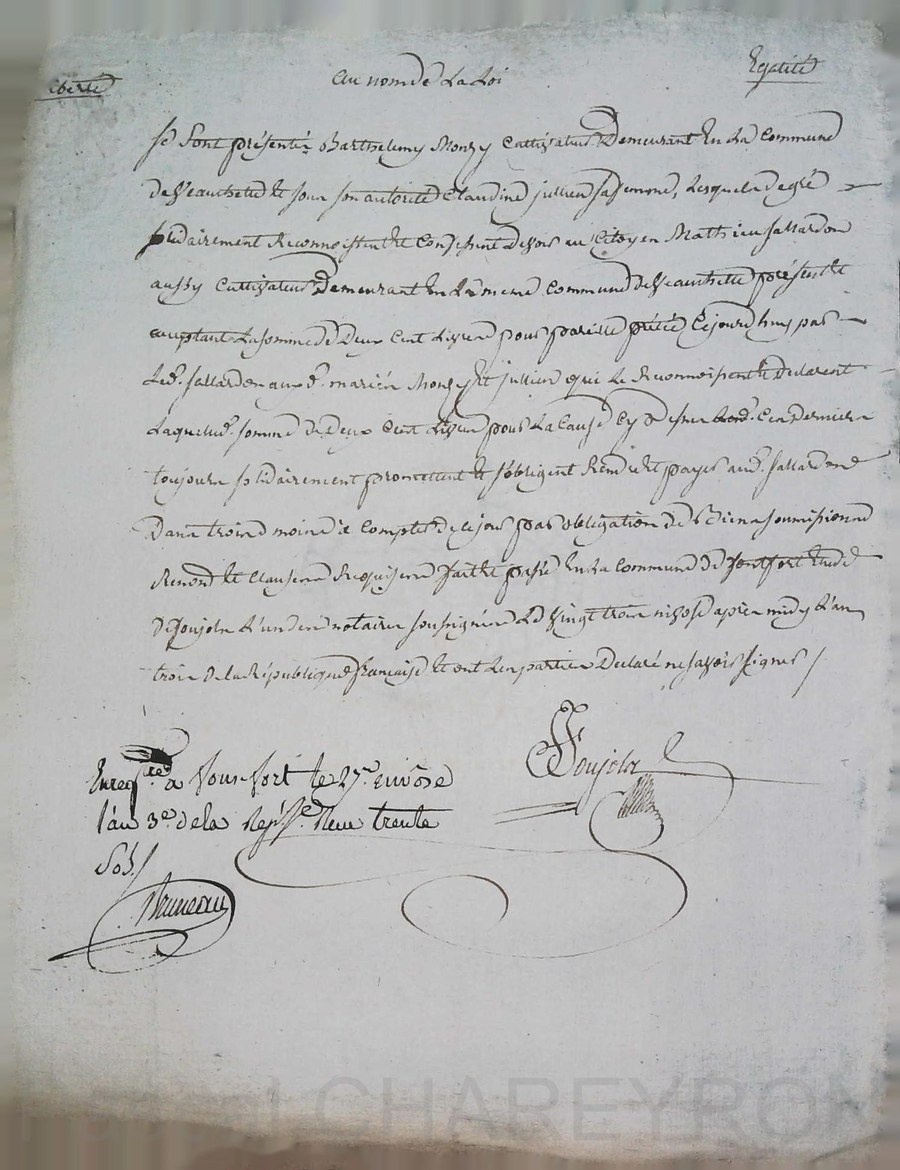 Liberté Au nom de La Loi Egalité
Se Sont présentés Barthelemy Monzy Cultivateur Demeurant En La Commune
de Veauchette Et sous son autorité Claudine jullien sa femme, Lesquels de gré
solidairement Reconnoissent Et Confessent devoir au Citoyen Mathieu fallardon
aussy Cultivateur Demeurant En La meme Commune de Veauchette présent Et
acceptant La somme de Deux Cent Livres pour pareille prétée Cejourd'huy par
Led. fallardon aux d. mariés Monzy Et jullien qui Le Reconnoissent Et declarent
Laquelle d. somme de deux Cent Livres pour La Cause Cy dessus Ces derniers
toujours solidairement promettent Et s'obligent Rendre Et payer aud. fallardon
Dans trois mois à Compter de ce jour par obligation de Biens soumissions
Renon. Et Clauses Requises fait Et passé En La Commune de fontfort Etude
De Soujols L'un des notaires soussignés Le Vingt trois nivose après midy L'an
trois de la République française Et ont Les parties Declaré ne savoir signer /
Soujols
Enregtré a fonsfort le 27e nivôse
l'an 3e. de la Repe. Reçu trente
Sols /
Bruneau
CHAREYRON